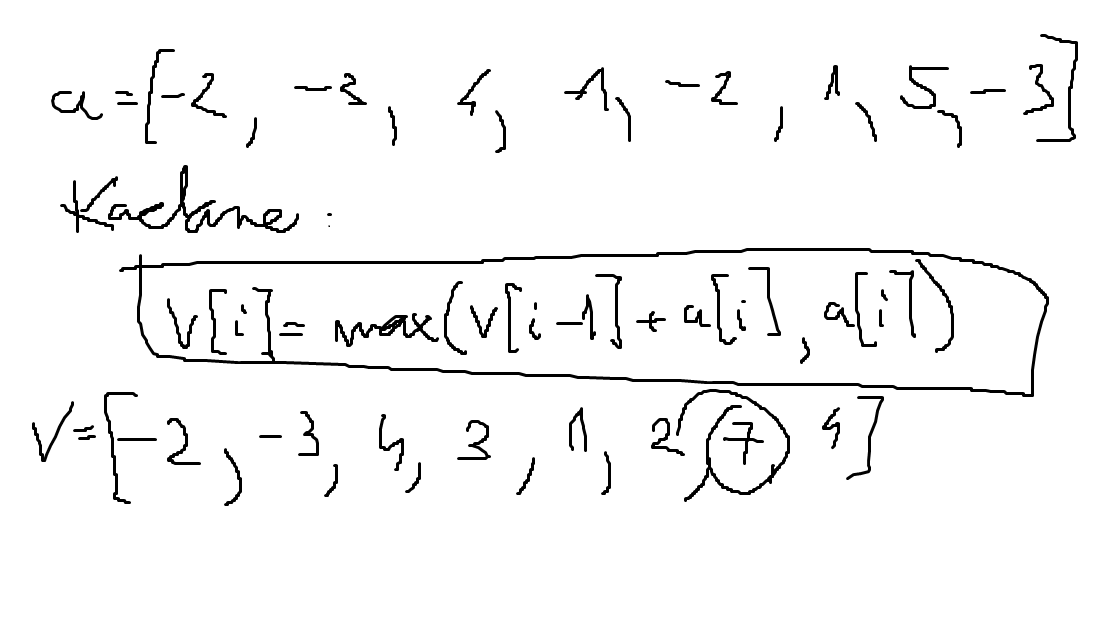 a=[-2, -3, 4, -1, -2, 1, 5, -3]
Kadane:
V[i]= max(V[i-1]+a[i], a[i])
V=[-2, -3, 4, 3, 1, 2, 7 4]